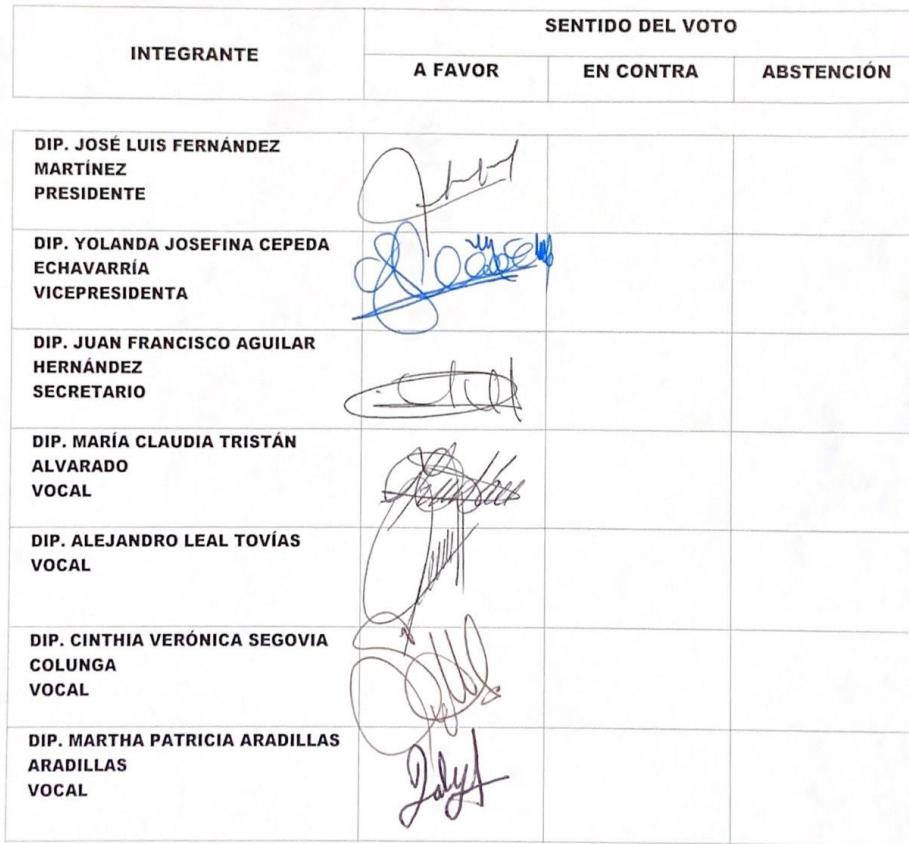 INTEGRANTE
SENTIDO DEL VOTO
A FAVOR EN CONTRA ABSTENCIÓN
DIP. JOSÉ LUIS FERNÁNDEZ
MARTÍNEZ
PRESIDENTE
DIP. YOLANDA JOSEFINA CEPEDA
ECHAVARRÍA
VICEPRESIDENTA
DIP. JUAN FRANCISCO AGUILAR
HERNÁNDEZ
SECRETARIO
DIP. MARÍA CLAUDIA TRISTÁN
ALVARADO
VOCAL
DIP. ALEJANDRO LEAL TOVÍAS
VOCAL
DIP. CINTHIA VERÓNICA SEGOVIA
COLUNGA
VOCAL
DIP. MARTHA PATRICIA ARADILLAS
ARADILLAS
VOCAL